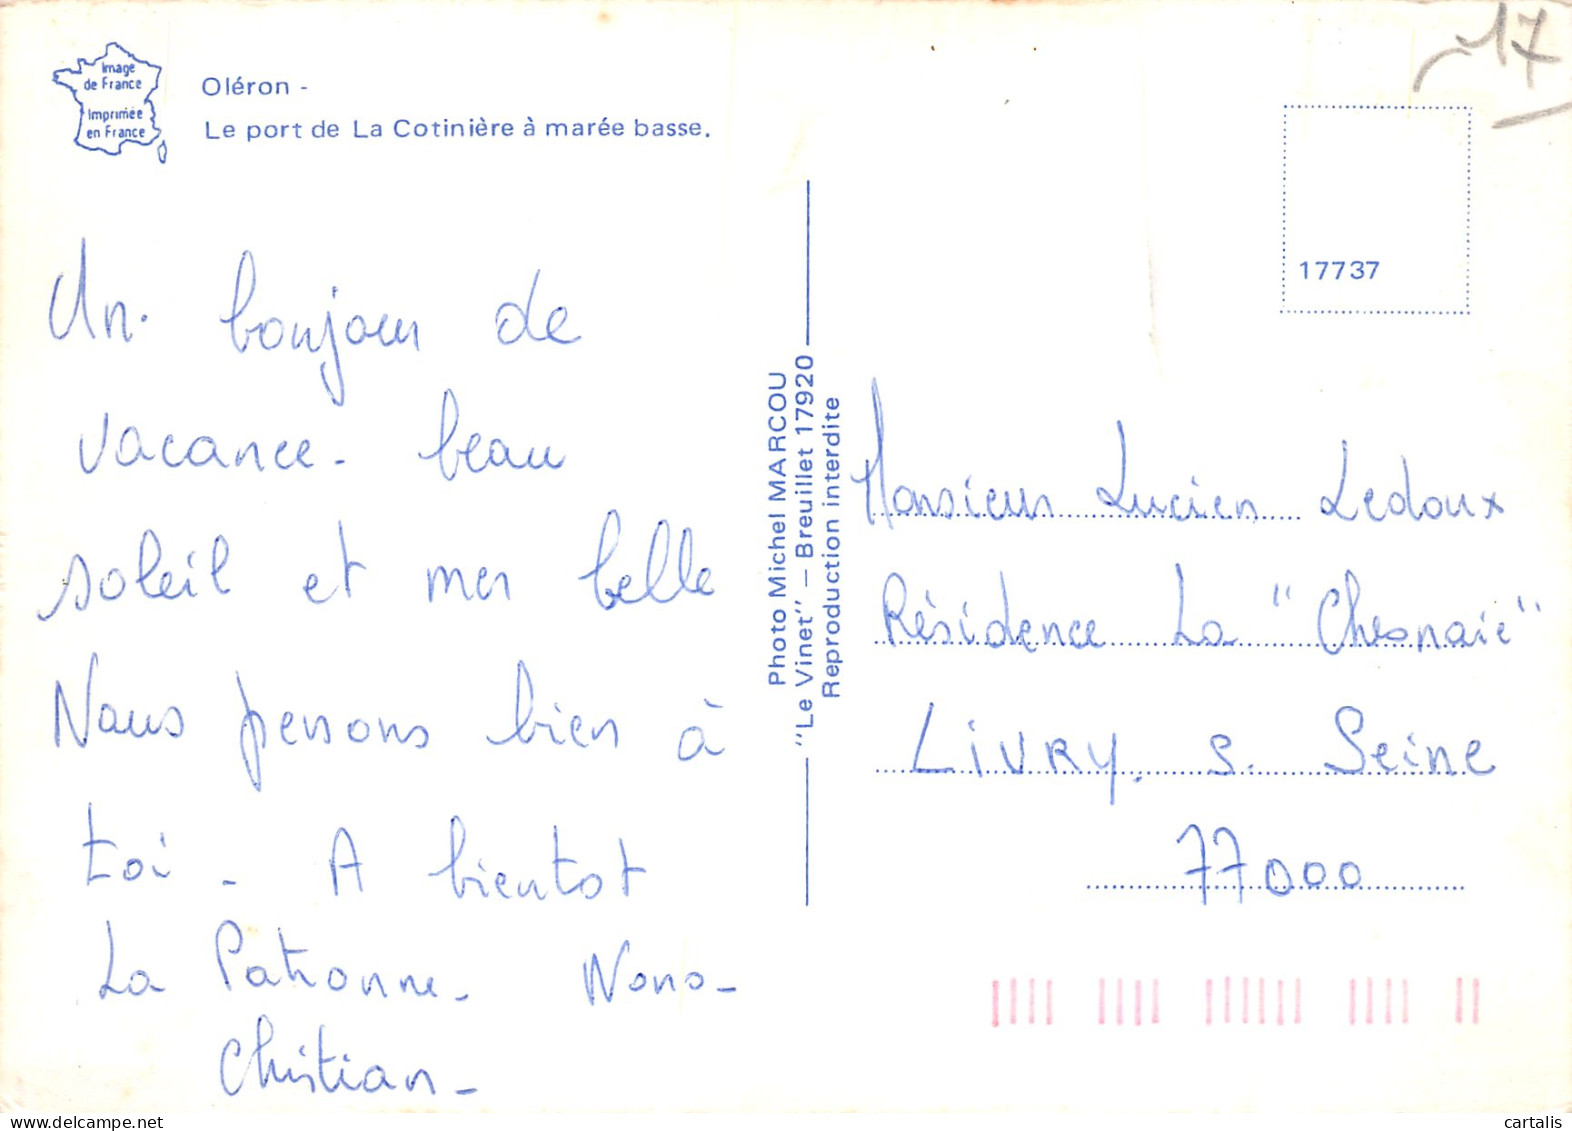 Image
de France
Imprimée
en France
Oléron -
Le port de La Cotinière à marée basse.
Un bonjour de
vacance - beau
soleil et mer belle
Nous pensons bien à
toi - A bientot
La Patronne - Nono -
Christian -
Photo Michel MARCOU
"Le Vinet" – Breuillet 17920
Reproduction interdite
17
17737
Monsieur Lucien Ledoux
Résidence La "Chesnaie"
LiVRY. s. Seine
77000
cartalis
www.delcampe.net